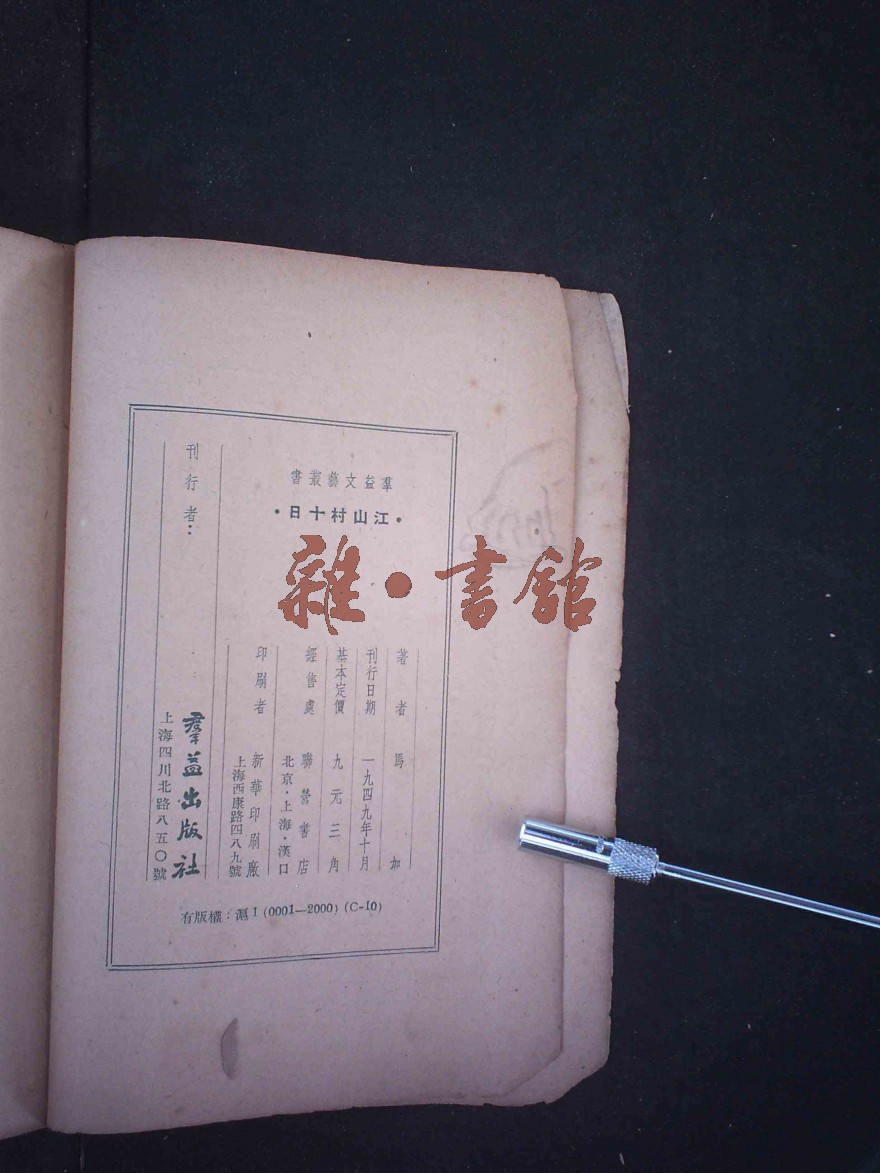 羣益文藝叢書
·江山村十日·
著者 馬加
刊行日期 一九四九年十月
基本定價 九元三角
經售處 聯營書店
北京·上海·漢口
印刷者 新華印刷廠
上海西康路四八九號
刊行者：
羣益出版社
上海四川北路八五〇號
有版權：滬1(0001—2000)(C-10)
雜·書館